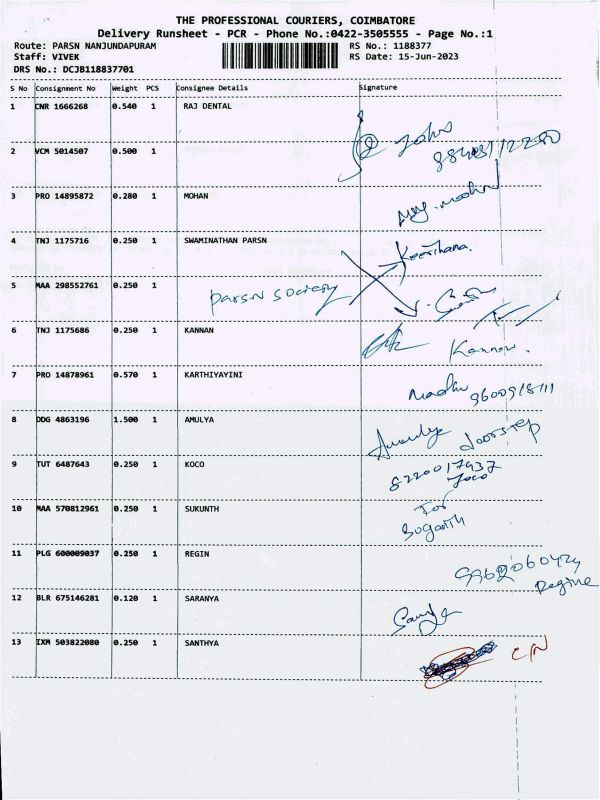 THE PROFESSIONAL COURIERS, COIMBATORE
Delivery Runsheet - PCR - Phone No.:0422-3505555 - Page No.:1
Route: PARSN NANJUNDAPURAM RS No.: 1188377
Staff: VIVEK RS Date: 15-Jun-2023
DRS No.: DCJB118837701
S No Consignment No Weight PCS Consignee Details Signature
1 CNR 1666268 0.540 1 RAJ DENTAL
John
2 VCM 5014507 0.500 1
3 PRO 14895872 0.280 1 MOHAN
4 TNJ 1175716 0.250 1 SWAMINATHAN PARSN
Keerthana.
5 MAA 298552761 0.250 1
Parsn society
6 TNJ 1175686 0.250 1 KANNAN
Kannan.
7 PRO 14878961 0.570 1 KARTHIYAYINI
Madhu
8 DDG 4863196 1.500 1 AMULYA
Amulya doorstep
9 TUT 6487643 0.250 1 KOCO
8220017437
10 MAA 570812961 0.250 1 SUKUNTH
For
11 PLG 600009037 0.250 1 REGIN
Regine
12 BLR 675146281 0.120 1 SARANYA
13 IXM 503822080 0.250 1 SANTHYA